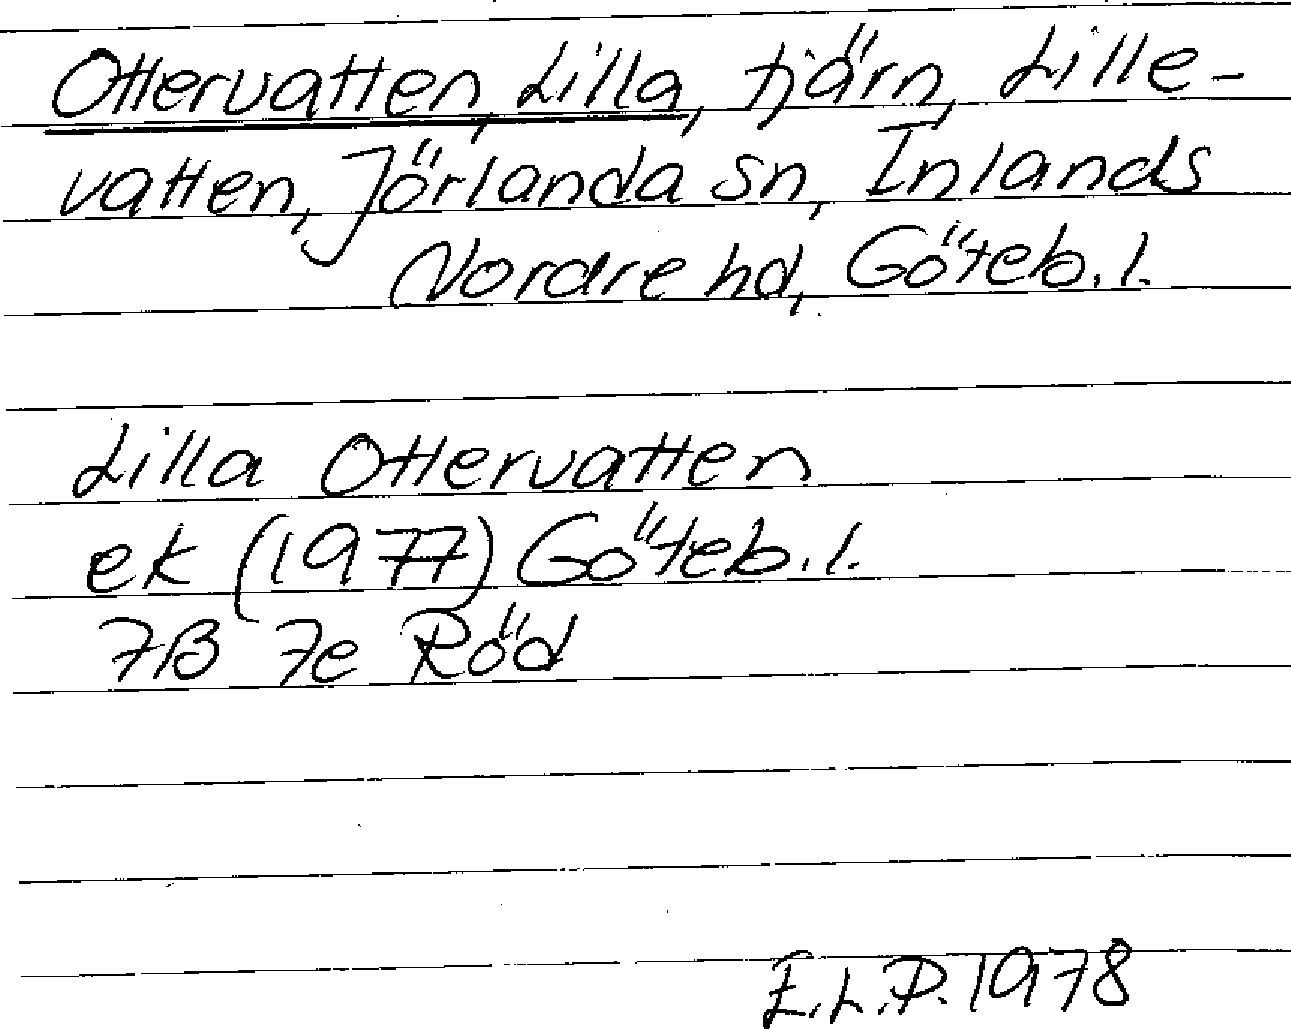 Ottervatten, Lilla, tjärn, Lille-
vatten, Jörlanda sn, Inlands
Nordre hd, Göteb. l.
Lilla Ottervatten
ek (1977) Göteb. l.
7B 7e Röd
E.L.P. 1978